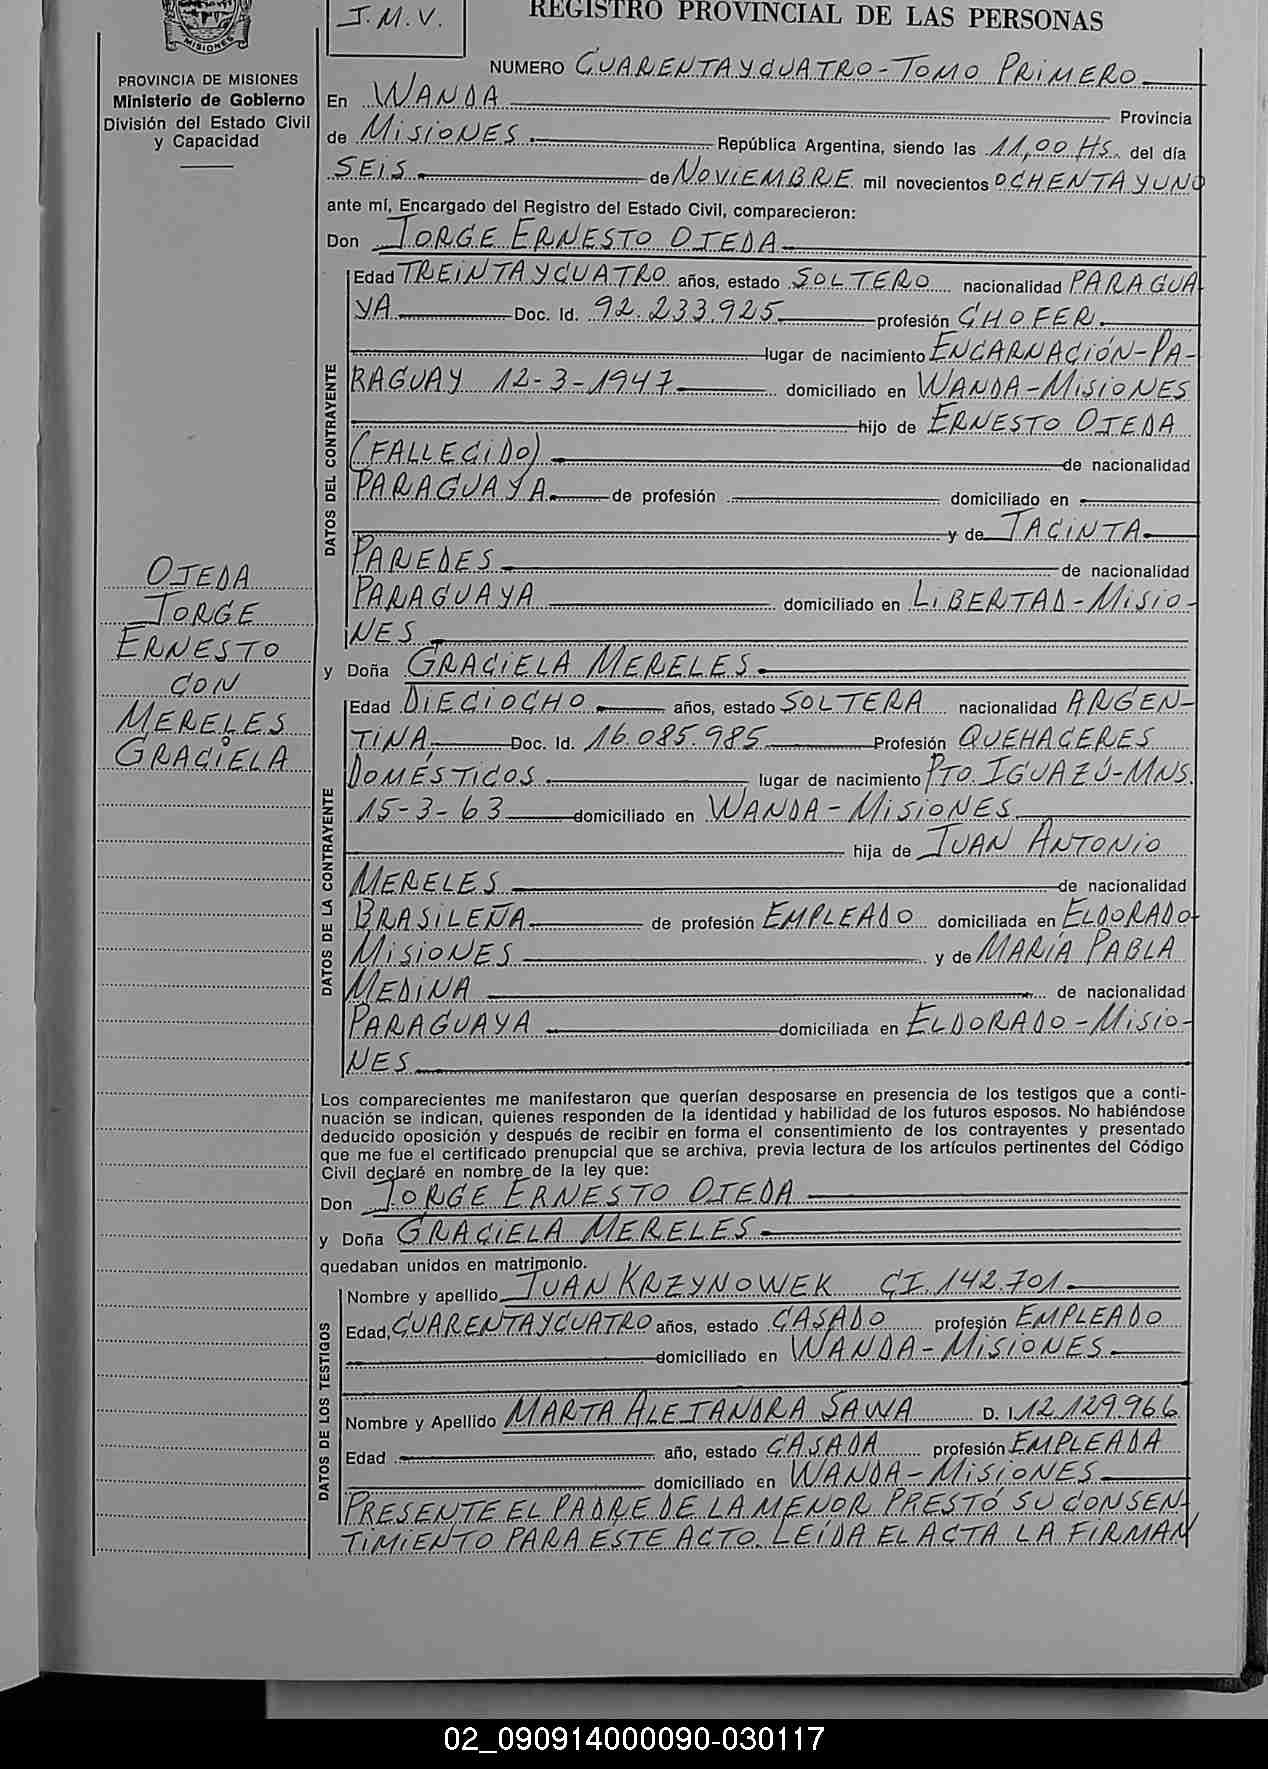 MISIONES
PROVINCIA DE MISIONES
Ministerio de Gobierno
División del Estado Civil
y Capacidad
J.M.V.
REGISTRO PROVINCIAL DE LAS PERSONAS
NUMERO CUARENTA Y CUATRO - TOMO PRIMERO
En WANDA Provincia
de MISIONES República Argentina, siendo las 11,00 HS. del día
SEIS de NOVIEMBRE mil novecientos OCHENTA Y UNO
ante mí, Encargado del Registro del Estado Civil, comparecieron:
Don JORGE ERNESTO OJEDA
DATOS DEL CONTRAYENTE
Edad TREINTA Y CUATRO años, estado SOLTERO nacionalidad PARAGUA
YA Doc. Id. 92.233.925 profesión CHOFER
lugar de nacimiento ENCARNACIÓN-PA-
RAGUAY 12-3-1947 domiciliado en WANDA-MISIONES
hijo de ERNESTO OJEDA
(FALLECIDO) de nacionalidad
PARAGUAYA de profesión domiciliado en
y de JACINTA
PAREDES de nacionalidad
PARAGUAYA domiciliado en LIBERTAD-MISIO-
NES
y Doña GRACIELA MERELES
DATOS DE LA CONTRAYENTE
Edad DIECIOCHO años, estado SOLTERA nacionalidad ARGEN-
TINA Doc. Id. 16.085.985 Profesión QUEHACERES
DOMÉSTICOS lugar de nacimiento PTO. IGUAZÚ-MNS.
15-3-63 domiciliado en WANDA-MISIONES
hija de JUAN ANTONIO
MERELES de nacionalidad
BRASILEÑA de profesión EMPLEADO domiciliada en ELDORADO
MISIONES y de MARÍA PABLA
MEDINA de nacionalidad
PARAGUAYA domiciliada en ELDORADO-MISIO-
NES
OJEDA
JORGE
ERNESTO
CON
MERELES
GRACIELA
Los comparecientes me manifestaron que querían desposarse en presencia de los testigos que a conti-
nuación se indican, quienes responden de la identidad y habilidad de los futuros esposos. No habiéndose
deducido oposición y después de recibir en forma el consentimiento de los contrayentes y presentado
que me fue el certificado prenupcial que se archiva, previa lectura de los artículos pertinentes del Código
Civil declaré en nombre de la ley que:
Don JORGE ERNESTO OJEDA
y Doña GRACIELA MERELES
quedaban unidos en matrimonio.
DATOS DE LOS TESTIGOS
Nombre y apellido JUAN KRZYNOWEK CI.142.701
Edad, CUARENTA Y CUATRO años, estado CASADO profesión EMPLEADO
domiciliado en WANDA-MISIONES
Nombre y Apellido MARTA ALEJANDRA SAWA D. I. 12.129.966
Edad año, estado CASADA profesión EMPLEADA
domiciliado en WANDA-MISIONES
PRESENTE EL PADRE DE LA MENOR PRESTÓ SU CONSEN-
TIMIENTO PARA ESTE ACTO. LEÍDA EL ACTA LA FIRMAN
02_090914000090-030117